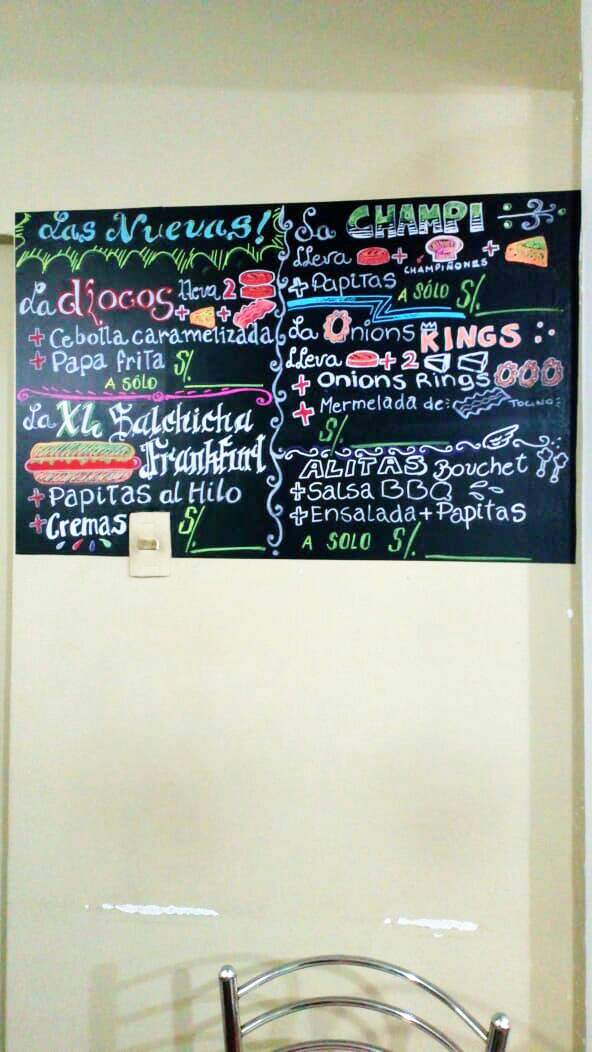 Las Nuevas!
La diocos lleva 2
+ + 
+ Cebolla caramelizada
+ Papa frita S/.
A SÓLO
La XL Salchicha
Frankfurt
+ Papitas al Hilo
+ Cremas S/.
La CHAMPI
Lleva + +
CHAMPIÑONES
+ Papitas
A SÓLO S/.
La Onions KINGS
Lleva + 2
+ Onions Rings
+ Mermelada de: TOCINO
S/.
ALITAS Bouchet
+ Salsa BBQ
+ Ensalada + Papitas
A SOLO S/.